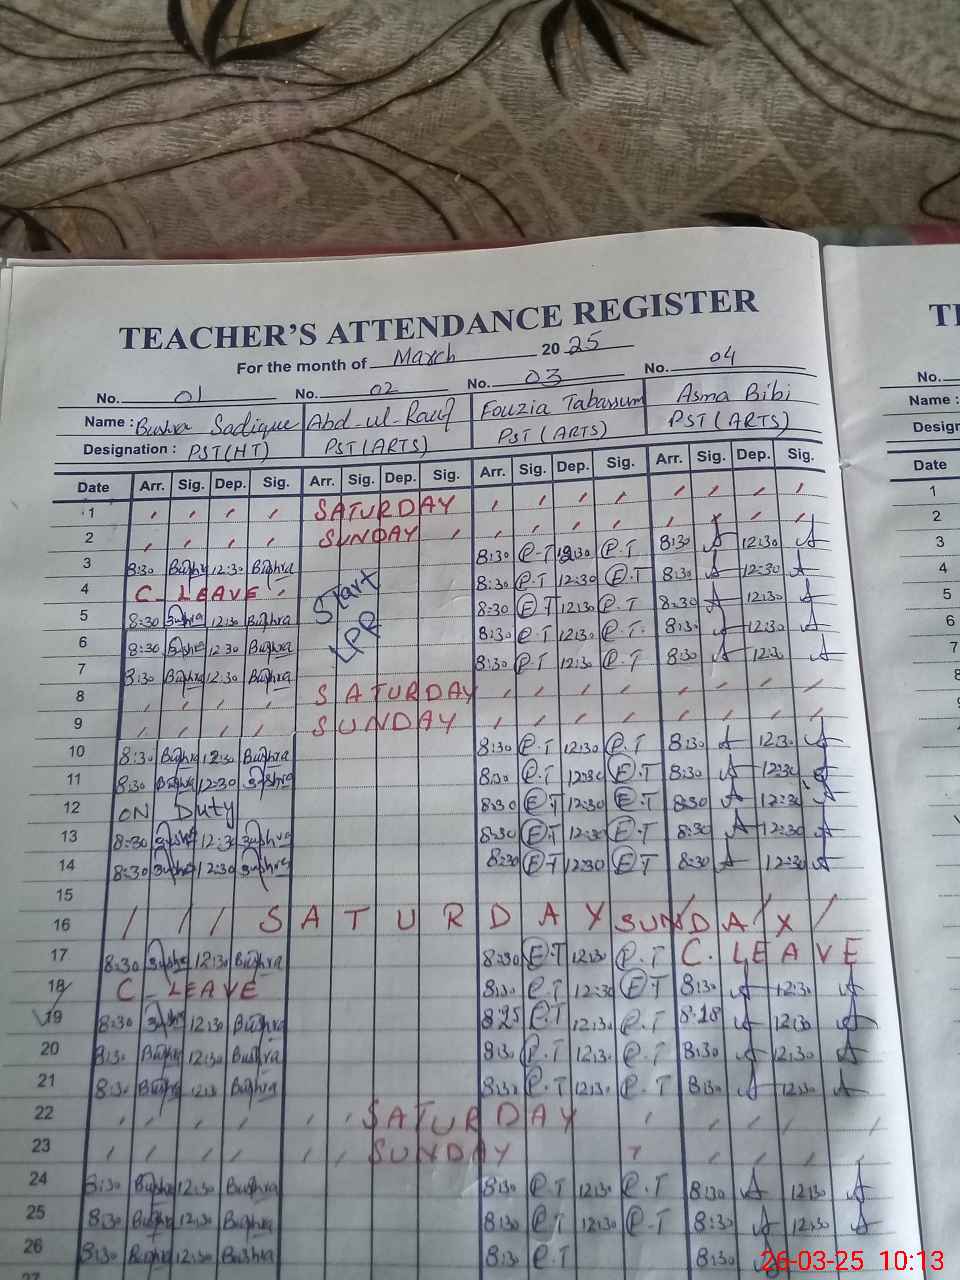 TEACHER'S ATTENDANCE REGISTER
For the month of March 2025
No. 01 No. 02 No. 03 No. 04
Name : Bushra Sadique Abd-ul-Rauf Fouzia Tabassum Asma Bibi
Designation : PST(HT) PST(ARTS) PST (ARTS) PST (ARTS)
Date Arr. Sig. Dep. Sig. Arr. Sig. Dep. Sig. Arr. Sig. Dep. Sig. Arr. Sig. Dep. Sig.
1 SATURDAY
2 SUNDAY
3 8:30 Bushra 12:30 Bushra 8:30 F.T 12:30 F.T 8:30 A 12:30 A
4 C. LEAVE Start 8:30 F.T 12:30 F.T 8:30 A 12:30 A
5 8:30 Bushra 12:30 Bushra LPR 8:30 F.T 12:30 F.T 8:30 A 12:30 A
6 8:30 Bushra 12:30 Bushra 8:30 F.T 12:30 F.T 8:30 A 12:30 A
7 8:30 Bushra 12:30 Bushra 8:30 F.T 12:30 F.T 8:30 A 12:30 A
8 SATURDAY
9 SUNDAY
10 8:30 Bushra 12:30 Bushra 8:30 F.T 12:30 F.T 8:30 A 12:30 A
11 8:30 Bushra 12:30 Bushra 8:30 F.T 12:30 F.T 8:30 A 12:30 A
12 ON Duty 8:30 F.T 12:30 F.T 8:30 A 12:30 A
13 8:30 Bushra 12:30 Bushra 8:30 F.T 12:30 F.T 8:30 A 12:30 A
14 8:30 Bushra 12:30 Bushra 8:30 F.T 12:30 F.T 8:30 A 12:30 A
15
16 SATURDAY SUNDAY
17 8:30 Bushra 12:30 Bushra 8:30 F.T 12:30 F.T C. LEAVE
18 C. LEAVE 8:30 F.T 12:30 F.T 8:30 A 12:30 A
19 8:30 Bushra 12:30 Bushra 8:25 F.T 12:30 F.T 8:28 A 12:30 A
20 8:30 Bushra 12:30 Bushra 8:30 F.T 12:30 F.T 8:30 A 12:30 A
21 8:30 Bushra 12:30 Bushra 8:30 F.T 12:30 F.T 8:30 A 12:30 A
22 SATURDAY
23 SUNDAY
24 8:30 Bushra 12:30 Bushra 8:30 F.T 12:30 F.T 8:30 A 12:30 A
25 8:30 Bushra 12:30 Bushra 8:30 F.T 12:30 F.T 8:30 A 12:30 A
26 8:30 Bushra 12:30 Bushra 8:30 F.T 8:30 A
27
No.
Name :
Date
1
2
3
4
5
6
7
26-03-25 10:13